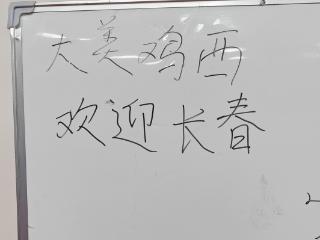 大美鸡西
欢迎长春